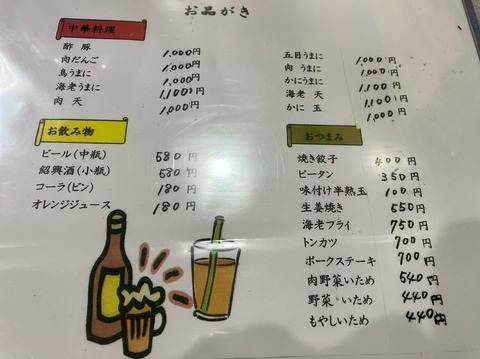 お品がき
中華料理
酢豚 1,000円
肉だんご 1,000円
鳥うまに 1,000円
海老うまに 1,100円
肉天 1,000円
五目うまに 1,000円
肉うまに 1,000円
かにうまに 1,100円
海老天 1,100円
かに玉 1,000円
お飲み物
ビール(中瓶) 580円
紹興酒(小瓶) 580円
コーラ(ビン) 180円
オレンジジュース 180円
おつまみ
焼き餃子 400円
ピータン 350円
味付け半熟玉 100円
生姜焼き 550円
海老フライ 750円
トンカツ 700円
ポークステーキ 700円
肉野菜いため 540円
野菜いため 440円
もやしいため 440円